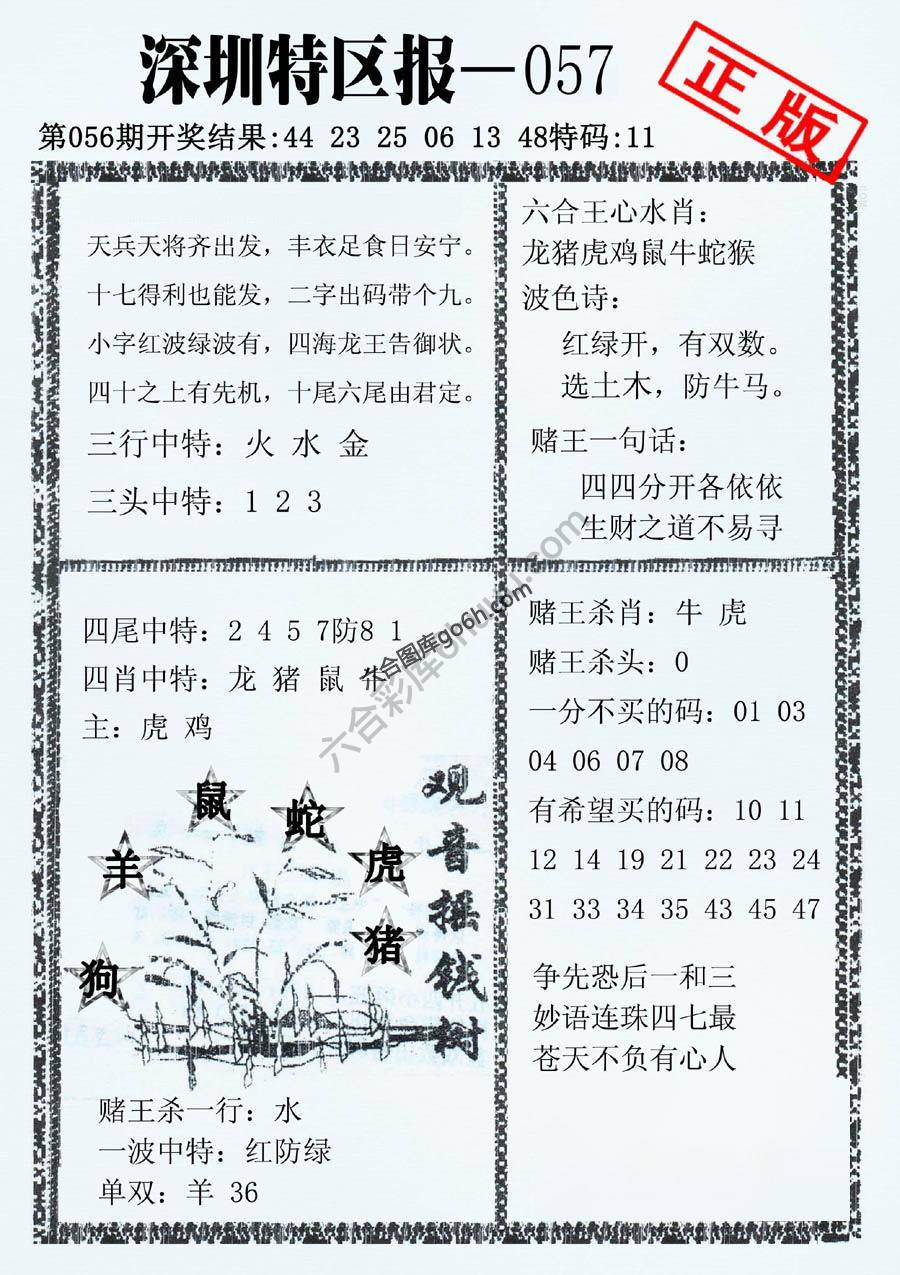 深圳特区报—057
正版
第056期开奖结果:44 23 25 06 13 48特码:11
天兵天将齐出发，丰衣足食日安宁。
十七得利也能发，二字出码带个九。
小字红波绿波有，四海龙王告御状。
四十之上有先机，十尾六尾由君定。
三行中特：火 水 金
三头中特：1 2 3
六合王心水肖：
龙猪虎鸡鼠牛蛇猴
波色诗：
红绿开，有双数。
选土木，防牛马。
赌王一句话：
四四分开各依依
生财之道不易寻
四尾中特：2 4 5 7防8 1
四肖中特：龙 猪 鼠 牛
主：虎 鸡
鼠
蛇
羊
虎
猪
狗
观音摇钱树
赌王杀一行：水
一波中特：红防绿
单双：羊 36
赌王杀肖：牛 虎
赌王杀头：0
一分不买的码：01 03
04 06 07 08
有希望买的码：10 11
12 14 19 21 22 23 24
31 33 34 35 43 45 47
争先恐后一和三
妙语连珠四七最
苍天不负有心人
六合图库go6h.com